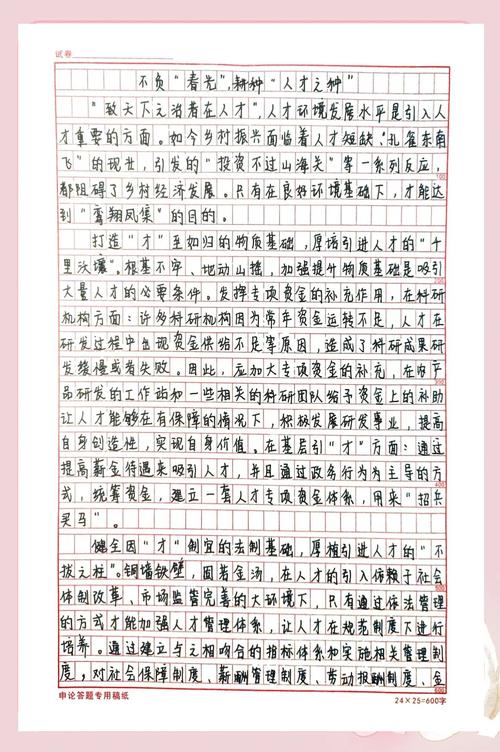 试卷
不负“春光”，耕种“人才之种”
“致天下之治者在人才”，人才环境发展水平是引入人
才重要的方面。如今乡村振兴面临着人才短缺、“孔雀东南
飞”的现状，引发的“投资不过山海关”等一系列反应，
都阻碍了乡村经济发展。只有在良好环境基础下，才能达
到“鸾翔凤集”的目的。
打造“才”至如归的物质基础，厚植引进人才的“千
里沃壤”。根基不牢、地动山摇，加强提升物质基础是吸引
大量人才的必要条件。发挥专项资金的补充作用，在科研
机构方面：许多科研机构因为常年资金运转不足，人才在
研发过程中出现资金供给不足等原因，造成了科研成果研
发缓慢或者失败。因此，应加大专项资金的补充，在农产
品研发的工作站和一些相关的科研团队给予资金上的补助
让人才能够在有保障的情况下，积极发展研发事业，提高
自身创造性，实现自身价值。在基层引“才”方面：通过
提高薪金待遇来吸引人才，并且通过政务行为为主导的方
式，统筹资金，建立一套人才专项资金体系，用来“招兵
买马”。
健全因“才”制宜的法制基础，厚植引进人才的“不
拔之柱”。铜墙铁壁，固若金汤，在人才的引入依赖于社会
体制改革、市场监管完善的大环境下，只有通过依法管理
的方式才能加强人才管理体系，让人才在规范制度下进行
培养。通过建立与之相吻合的指标体系和实施相关管理制
度，对社会保障制度、薪酬管理制度、劳动报酬制度、金
100
200
300
400
500
600
申论答题专用稿纸
24×25=600字